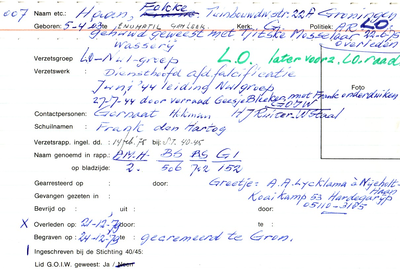 007 Naam etc.: Hoven, Focke Tuinbouwdwstr. 22A Groningen
Geboren: 5-4-03 te Kerk: G. Politiek: AR LO
gehuwd geweest met Tietske Mosselaar 22-6-75
Wassery overleden
Verzetsgroep LO-Nulgroep L.O. later voorz. L.O. raad
Verzetswerk Dienschof afd. falsificatie
Juni '44 leiding Nulgroep
27-7-44 door verraad Geesje Bleeker, met Frank onderduiken
Foto
GOIW
Contactpersonen: Gernaat Hickman HJ Ruiter
Schuilnamen Frank den Hartog
Verzetsrapp. ingel. dd.: 40-45
Naam genoemd in rapp.: P.M.H. BS BS GI
op bladzijde: 2. 506 702 152
Gearresteerd op : door: Greetje: A.A. Lycklama à Nijeholt-
Haan
Gevangen gezeten in : Kooikamp 53 Hardegarijp
05110-3185
Bevrijd op : uit : door:
X Overleden op: 21-12-79 te :
Begraven op : 24-12-79 te : gecremeerd te Gron.
Ingeschreven bij de Stichting 40/45:
Lid G.O.I.W. geweest: Ja / Neen